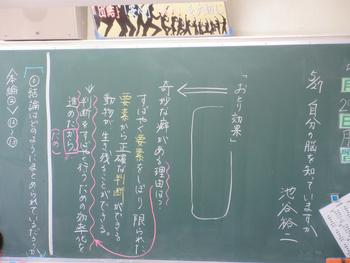 5/9 自分の脳を知っていますか
池谷裕二
「おとり効果」
奇妙な癖がある理由は?
すばやく要素をしぼり限られた
要素から正確な判断ができる
動物が生き残ることができる。
判断をすばやく行うための効率化を
進めたから
ため
結論はどのようにまとめられているだろうか
本論